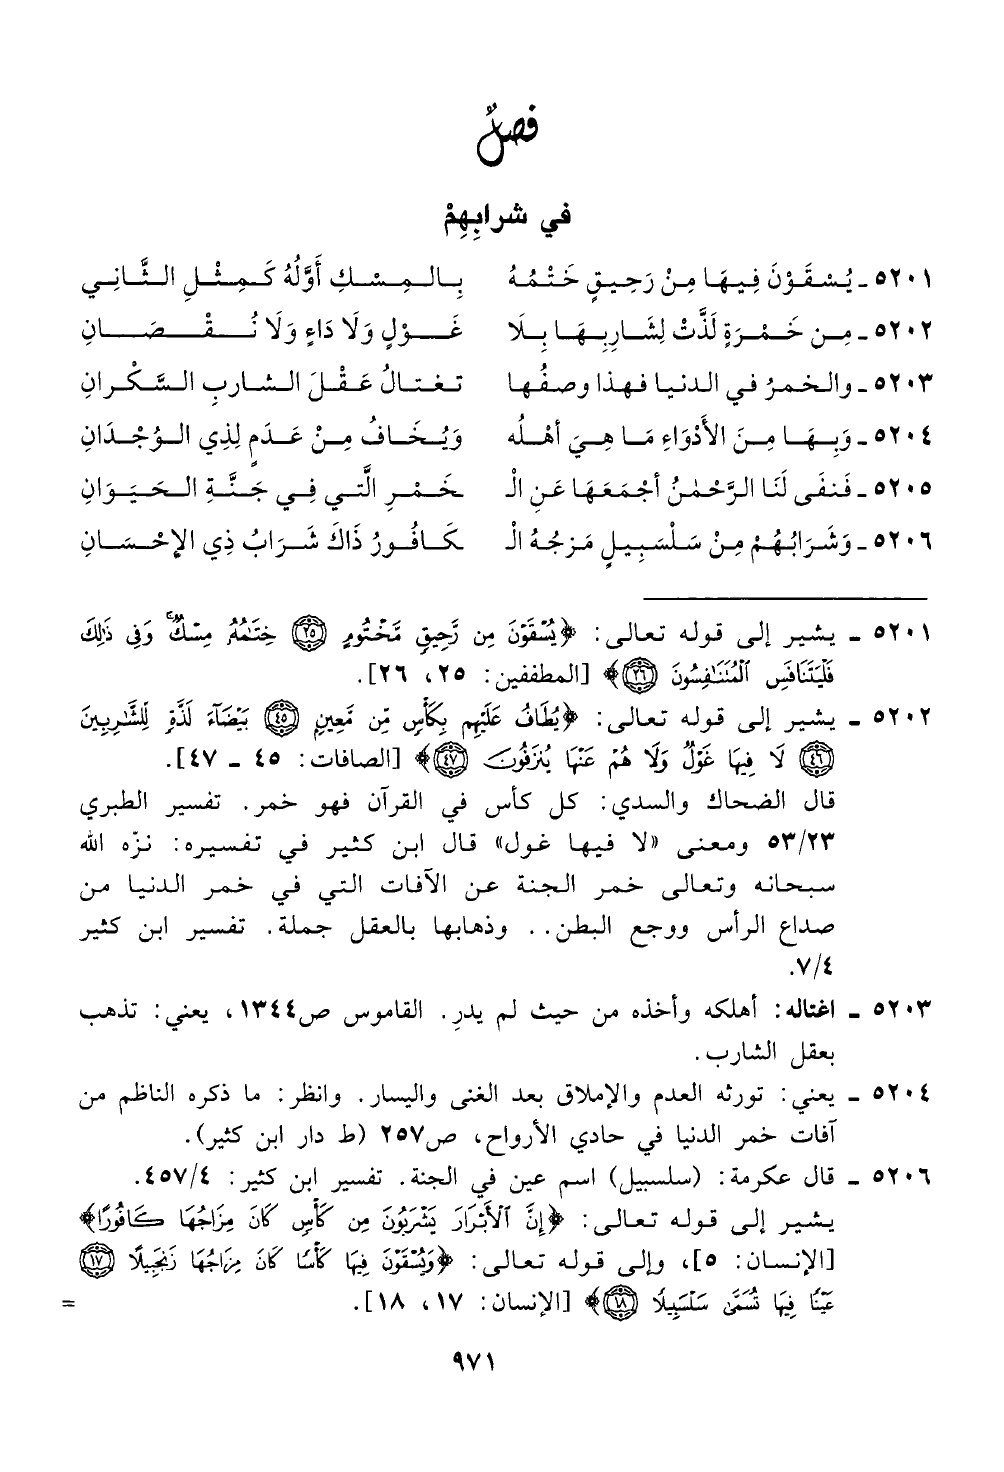 فصلٌ
في شرابِهِمْ
٥٢٠١ ـ يُسْقَوْنَ فِيهَا مِنْ رَحِيقٍ خَتْمُهُ بِالمِسْكِ أَوَّلُهُ كَمِثْلِ الثَّانِي
٥٢٠٢ ـ مِن خَمْرَةٍ لَذَّتْ لِشَارِبِهَا بِلَا غَوْلٍ وَلَا دَاءٍ وَلَا نُقْصَانِ
٥٢٠٣ ـ والخمرُ في الدنيا فهذا وصفُها تغتالُ عَقْلَ الشاربِ السَّكرانِ
٥٢٠٤ ـ وَبِهَا مِنَ الأَدْوَاءِ مَا هِيَ أهْلُه وَيُخَافُ مِنْ عَدَمٍ لِذِي الوُجْدَانِ
٥٢٠٥ ـ فَنَفَى لَنَا الرَّحْمٰنُ أجْمَعَهَا عَنِ الْـ خَمْرِ الَّتِي فِي جَنَّةِ الحَيَوَانِ
٥٢٠٦ ـ وَشَرَابُهُمْ مِنْ سَلْسَبِيلٍ مَزجُهُ الْـ كَافُورُ ذَاكَ شَرَابُ ذِي الإحْسَانِ
٥٢٠١ ـ يشير إلى قوله تعالى: ﴿يُسْقَوْنَ مِن رَّحِيقٍ مَّخْتُومٍ ۝٢٥ خِتَٰمُهُۥ مِسْكٌۚ وَفِى ذَٰلِكَ
فَلْيَتَنَافَسِ ٱلْمُتَنَٰفِسُونَ ۝٢٦﴾ [المطففين: ٢٥، ٢٦].
٥٢٠٢ ـ يشير إلى قوله تعالى: ﴿يُطَافُ عَلَيْهِم بِكَأْسٍ مِّن مَّعِينٍۭ ۝٤٥ بَيْضَآءَ لَذَّةٍ لِّلشَّٰرِبِينَ
۝٤٦ لَا فِيهَا غَوْلٌ وَلَا هُمْ عَنْهَا يُنزَفُونَ ۝٤٧﴾ [الصافات: ٤٥ ـ ٤٧].
قال الضحاك والسدي: كل كأس في القرآن فهو خمر. تفسير الطبري
٥٣/٢٣ ومعنى «لا فيها غول» قال ابن كثير في تفسيره: نزّه الله
سبحانه وتعالى خمر الجنة عن الآفات التي في خمر الدنيا من
صداع الرأس ووجع البطن.. وذهابها بالعقل جملة. تفسير ابن كثير
٧/٤.
٥٢٠٣ ـ اغتاله: أهلكه وأخذه من حيث لم يدرِ. القاموس ص١٣٤٤، يعني: تذهب
بعقل الشارب.
٥٢٠٤ ـ يعني: تورثه العدم والإملاق بعد الغنى واليسار. وانظر: ما ذكره الناظم من
آفات خمر الدنيا في حادي الأرواح، ص٢٥٧ (ط دار ابن كثير).
٥٢٠٦ ـ قال عكرمة: (سلسبيل) اسم عين في الجنة. تفسير ابن كثير: ٤٥٧/٤.
يشير إلى قوله تعالى: ﴿إِنَّ ٱلْأَبْرَارَ يَشْرَبُونَ مِن كَأْسٍ كَانَ مِزَاجُهَا كَافُورًا﴾
[الإنسان: ٥]، وإلى قوله تعالى: ﴿وَيُسْقَوْنَ فِيهَا كَأْسًا كَانَ مِزَاجُهَا زَنجَبِيلًا ۝١٧
عَيْنًا فِيهَا تُسَمَّىٰ سَلْسَبِيلًا ۝١٨﴾ [الإنسان: ١٧، ١٨].
=
٩٧١